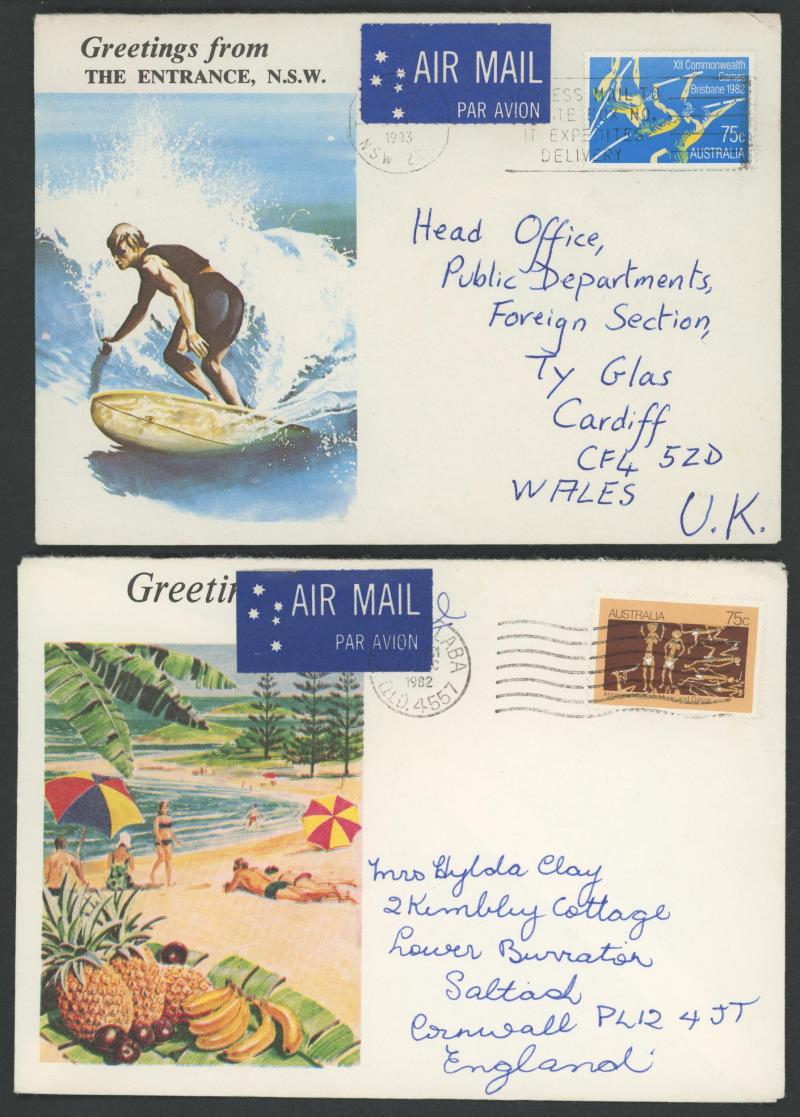 Greetings from
THE ENTRANCE, N.S.W.
AIR MAIL
PAR AVION
1983
N.S.W. 2
XII Commonwealth
Games
Brisbane 1982
75c
AUSTRALIA
MAIL TO
BOX NO.
IT EXPEDITES
DELIVERY
Head Office,
Public Departments,
Foreign Section,
Ty Glas
Cardiff
CF4 5ZD
WALES
U.K.
Greetin
AIR MAIL
PAR AVION
KABA
1982
QLD. 4557
AUSTRALIA 75c
Mrs Hylda Clay
2 Kimbley Cottage
Lower Burraton
Saltash
Cornwall PL12 4JT
England